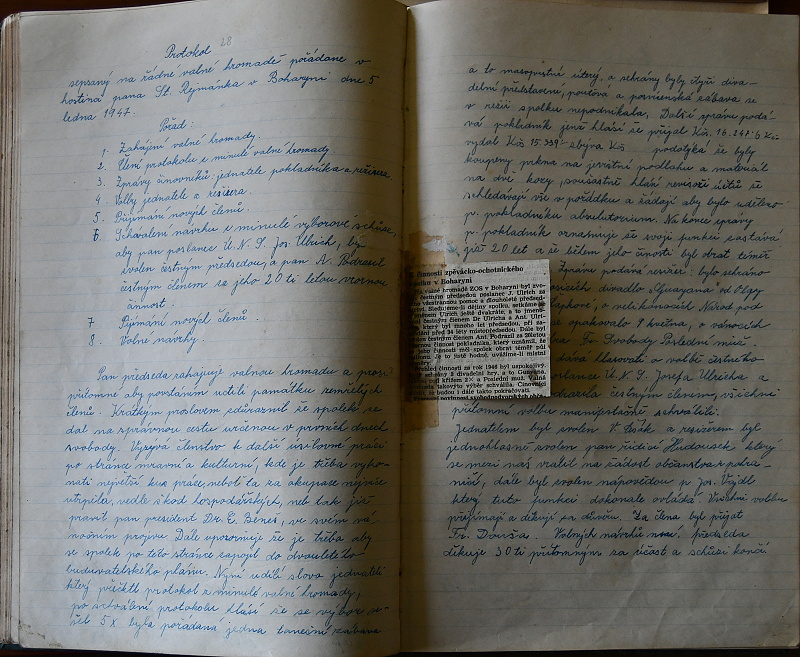 Protokol 28
sepsaný na řádné valné hromadě pořádane v
hostinci pana St. Rejmánka v Boharyni dne 5
ledna 1947.
Pořad:
1. Zahájení valné hromady.
2. Čtení protokolu z minulé valné hromady.
3. Zprávy činovníků: jednatele pokladníka a režisera
4. Volby jednatele a režisera.
5. Přijímaní nových členů.
6. Schvalení návrhu z minulé výborové schůze,
aby pan poslanec Ú. N. S. Jos. Ulrich, byl
zvolen čestným předsedou, a pan A. Podrazil
čestným členem za jeho 20 ti letou vzornou
činnost.
7 Přijmaní nových členů.
8. Volné návrhy.
Pan předseda zahajuje valnou hromadu a prosí
přítomné aby povstáním uctili památku zemřelých
členů. Kratkým proslovem zdůraznil že spolek se
dal na správnou cestu určenou v prvních dnech
svobody. Vyzývá členstvo k další úsilovné práci
po strance mravní a kulturní, kde je třeba vyko-
nati největší kus práce, neboť ta za okupace nejvíce
utrpěla, vedle škod hospodářských, neb tak již
pravil pan president Dr. E. Beneš, ve svém vá-
nočním projevu. Dale upozorňuje že je třeba aby
se spolek po této stránce zapojil do dvouletého
budovatelského plánu. Nyní udílí slovo jednateli
který přečetl protokol z minulé valné hromady,
po schválení protokolu hlásí že se výbor
5 x byla pořádaná jedna taneční zábava
a to masopustné úterý, a sehrány byly čtyři diva-
delní představení, pouťová a posvícenská zábava se
v režii spolku nepodnikala. Dalši správu podá-
vá pokladník jenž hlásí že přijal Kčs. 16.247.6
vydal Kčs 15.339 zbyva Kčs podotýká že byly
koupeny prkna na jevištní podlahu a materiál
na dvě kozy, součastně hlásí revisoři účtů že
schledávají vše v pořádku a žádají aby bylo uděleno
p. pokladníku absolutorium. Na konec zprávy
p. pokladník oznamuje že svoji funkci zastává
již 20 let a že během jeho činosti byl obrat téměř
Zprávu podává režisér: bylo sehráno
divadlo "Guayana" od Olgy
o velikonocích Národ pod
opakovalo 9 května, o vánocích
Fr. Svobody Poslední muž.
dává hlasovati o volbě čestného
poslance Ú. N. S. Josefa Ulricha a
čestným členem, všichni
přítomní volbu manifestačně schválili.
Jednatelem byl zvolen V. Lašk a režisérem byl
jednohlasně zvolen pan řídící Hudousek který
se mezi nás vrátil na žádost občanstva z pohra-
ničí, dále byl zvolen nápovědou p. Jos. Vejdl
který tuto funkci dokonale ovládá. Všichni volbu
přijímají a děkují za důvěru. Za člena byl přijat
Fr. Dousa. Volných návrhů není. předseda
děkuje 30 ti přítomným za účast a schůzi končí.
činnosti zpěvácko-ochotnického
spolku v Boharyni
valné hromadě ZOS v Boharyni byl zvo-
čestným předsedou poslanec J. Ulrich za
všestrannou pomoc a dlouholeté předsed-